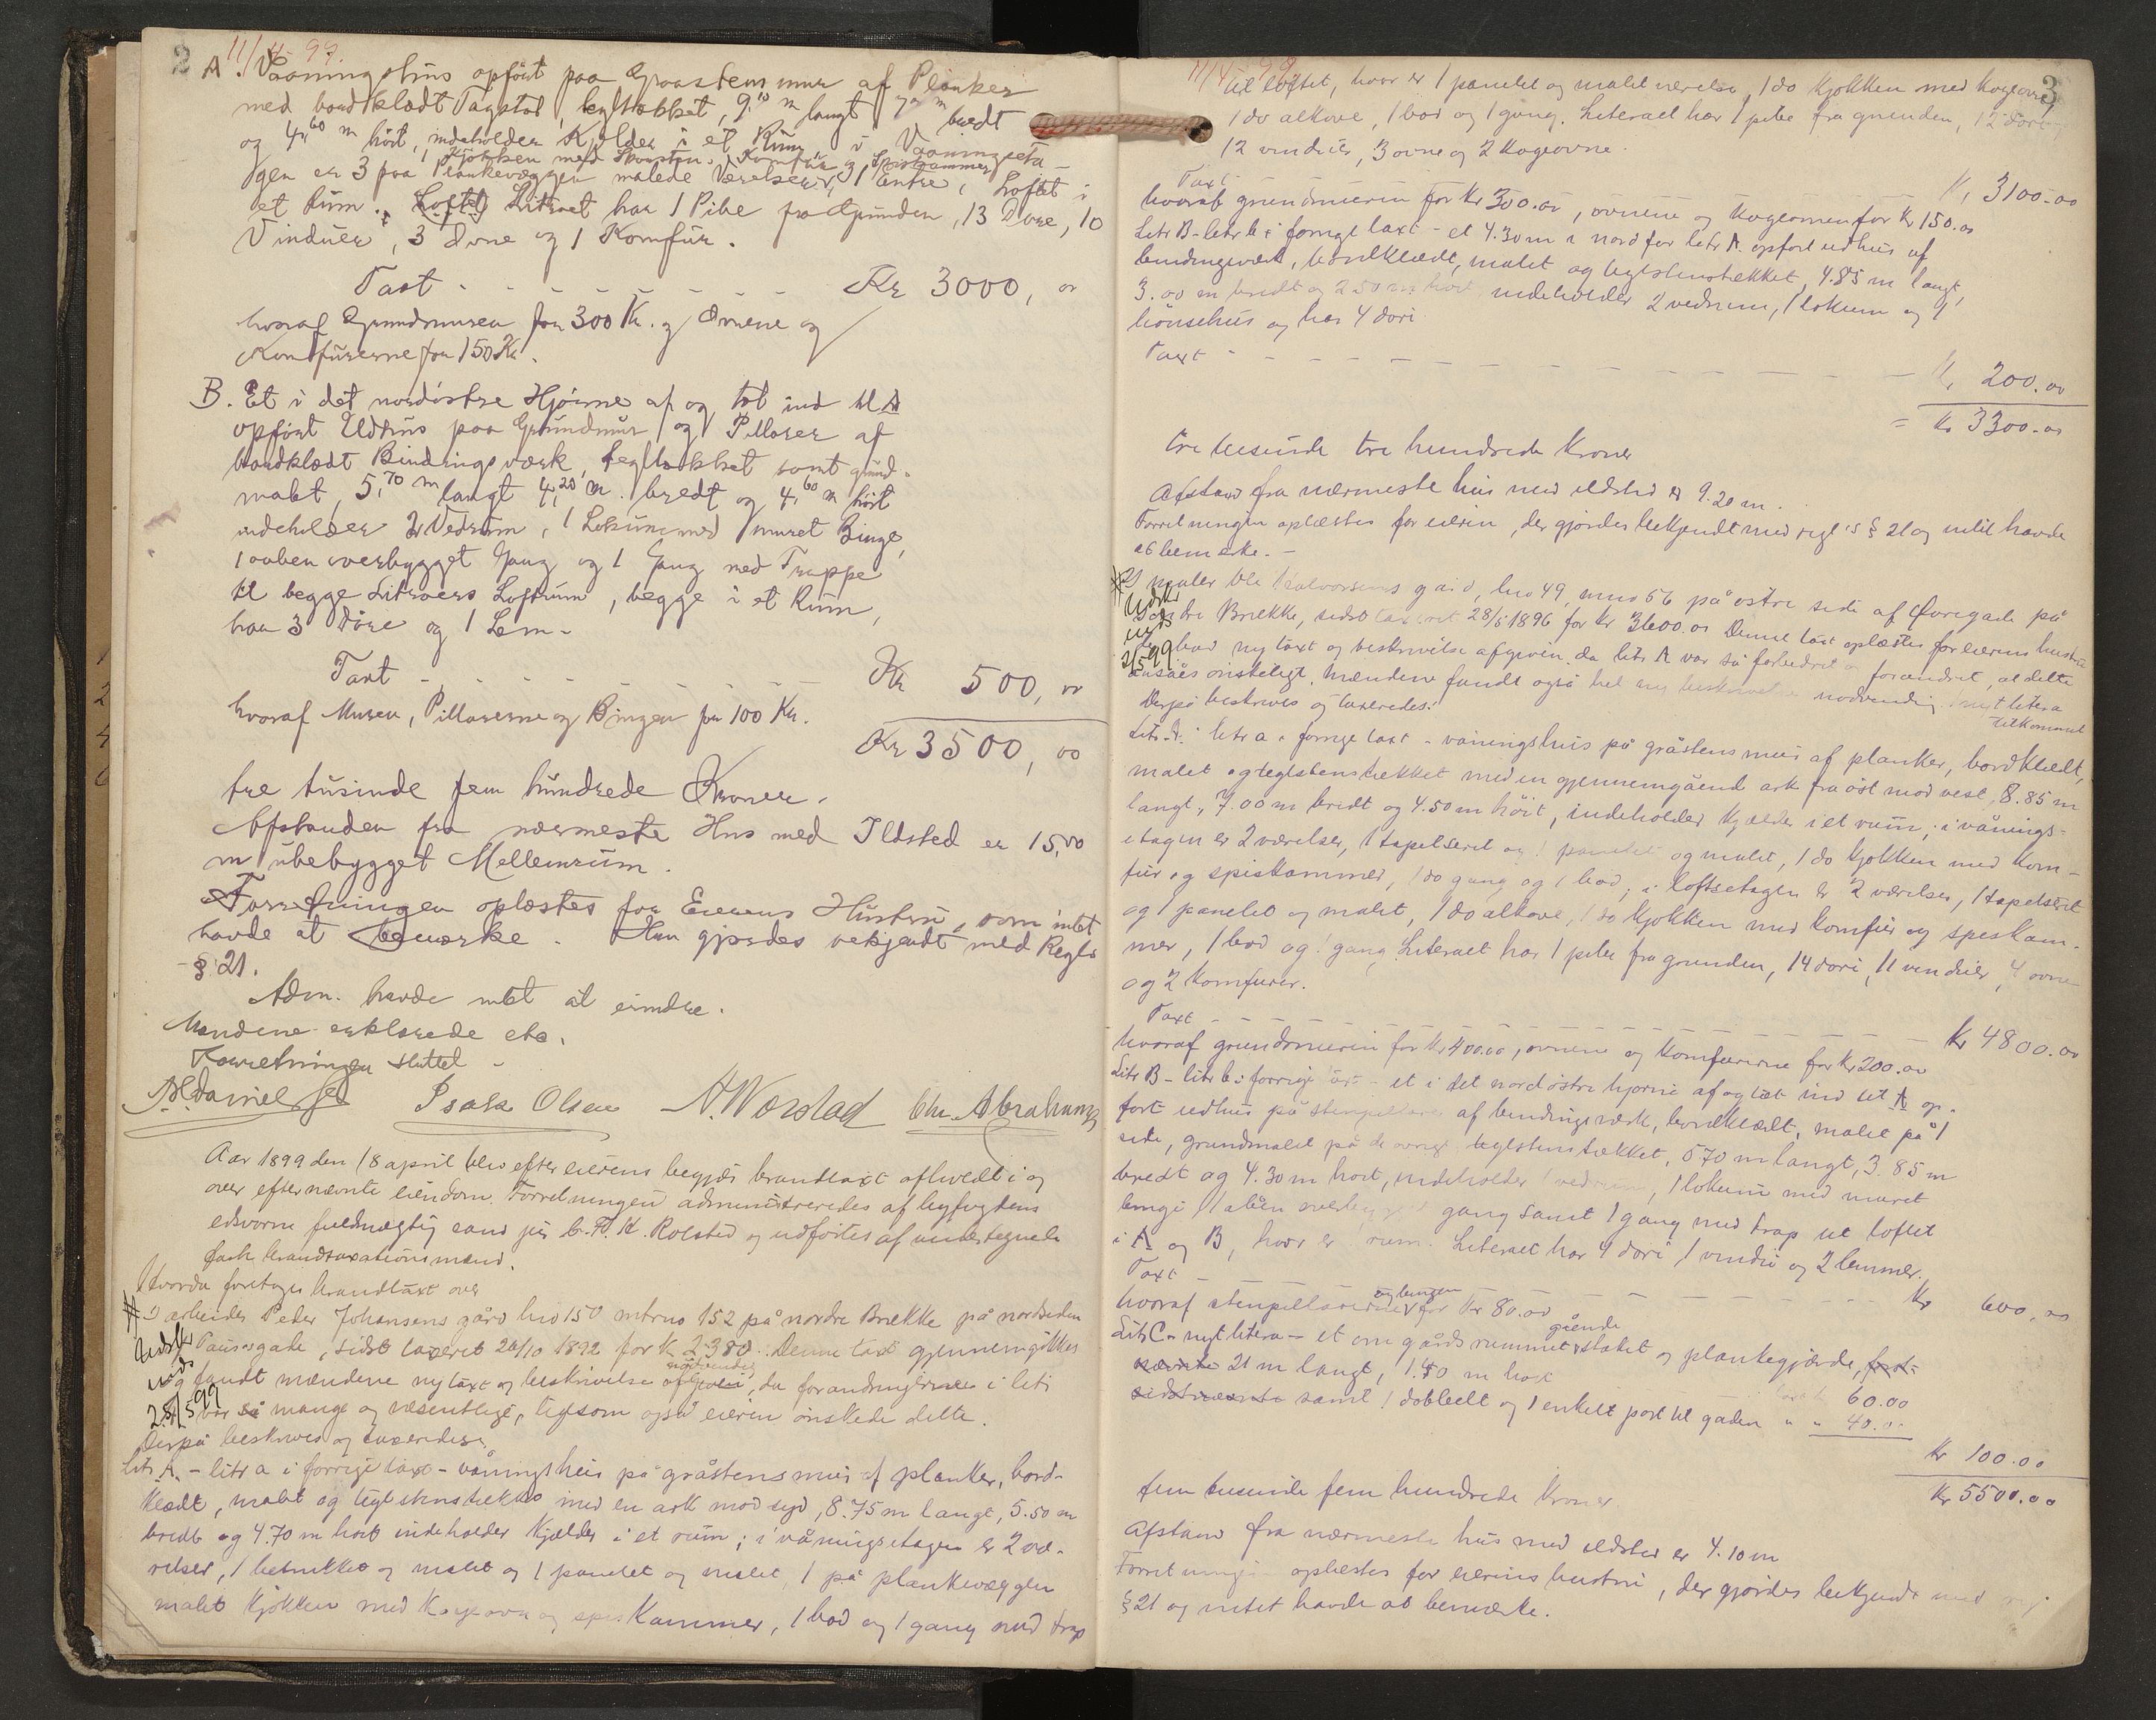 2
11/4-99.
A. Vaaningshus opført paa Graastensmur af Planker
med bordklædt Tagstol, tegltækket, 9,10 m langt m bredt
og 4,60 m høit, indeholder Kjælder i et Rum i Vaaningseta-
gen er 3 paa Plankevæggen malede Værelser, 1 Kjøkken med Skorsten, Komfur og Spiskammer, 1 Entre, Loftet i
et Rum. Litraet har 1 Pibe fra Grunden, 13 Døre, 10
Vinduer, 3 Ovne og 1 Komfur.
Taxt - - - - - - - - Kr 3000, 00
hvoraf Grundmuren for 300 Kr. og Ovnene og
Komfurerne for 150 Kr.
B. Et i det nordøstre Hjørne af og tæt ind til A
opført Udhus paa Grundmur og Pillarer af
bordklædt Bindingsværk, tegltækket samt grund-
malet, 5,70 m langt 4,20 m. bredt og 4,60 m høit
indeholder 2 Vedrum, 1 Lokum med muret Binge,
1 aaben overbygget Gang og 1 Gang med Trappe
til begge Litraers Loftrum, begge i et Rum,
har 3 Døre og 1 Lem.
Taxt - - - - - - - - Kr 500, 00
hvoraf Muren, Pillarerne og Bingen for 100 Kr.
Kr 3500, 00
tre tusinde fem hundrede Kroner.
Afstanden fra nærmeste Hus med Ildsted er 15,00
m ubebygget Mellemrum.
Forretningen oplæstes for Eierens Hustru, som intet
havde at bemærke. Hun gjordes bekjendt med Regls
§ 21.
Adm. havde intet at erindre.
Mændene erklærede etc.
Forretningen sluttet -
Isak Olsen N. Worslad Chr. Abrahams
Aar 1899 den 18 april blev efter eierens begjær brandtaxt afholdt i og
over efternævnte eiendom. Forretningen administreredes af byfogdens
edsvorne fuldmægtig cand jur Rolsted og udførtes af undertegnede
fach brandtaxationsmænd.
Hvorda foretoges brandtaxt over
# arbeider Peder Johansens gård hno 150 mtrno 152 på nordre Brække på nordsiden
Pausgate, sidst taxeret 26/10 1892 for Kr 2380. Denne taxt gjennemgikkes
og fandt mændene ny taxt og beskrivelse nødvendig, da forandringerne i litr
25/5 99
a var så mange og væsentlige, ligesom også eieren ønskede dette.
Derpå beskrives og taxeredes:
Litr A. - litr a i forrige taxt - våningshus på gråstensmur af planker, bord-
klædt, malet og teglstenstækket med en ark mod syd, 8.75 m langt, 5.50 m
bredt og 4.70 m høit indeholder kjælder i et rum; i våningsetagen er 2 væ-
relser, 1 betrukket og malet og 1 panelet og malet, 1 på plankevæggen
malet kjøkken med Kogeovn og spiskammer, 1 bod og 1 gang med trap
3
11/4-99
til loftet, hvor er 1 panelet og malet værelse, 1 do kjøkken med kogeovn,
1 do alkove, 1 bod og 1 gang. Literaet har 1 pibe fra grunden, 12 døre
12 vinduer, 3 ovne og 2 kogeovne.
Taxt - Kr 3100.00
hvoraf grundmuren for Kr 300.00, ovnene og kogeovnen for Kr 150.00
Litr B - litr b i forrige taxt - et 4.30 m i nord for litr A opført udhus af
bindingsværk, bordklædt, malet og teglstenstækket, 4.85 m langt,
3.00 m bredt og 2.50 m høit indeholder 2 vedrum, 1 lokum og 1
hønsehus og har 4 døre
Taxt - - - - - - - - - - Kr 200.00
= Kr 3300.00
tre tusinde tre hundrede Kroner
Afstand fra nærmeste hus med ildsted er 9.20 m.
Forretningen oplæstes for eieren, der gjordes bekjendt med regl's § 21 og intet havde
at bemærke. -
# maler Ole Halvorsens gård, hno 49, mno 56 på østre side af Øvregade på
søndre Brække, sidst taxeret 28/5 1896 for Kr 3600.00 Denne taxt oplæstes for eierens hustru
2/5 99
bad ny taxt og beskrivelse afgiven, da litr A var så forbedret og forandret, at dette
ansåes ønskeligt. Mændene fandt også hel ny beskrivelse nødvendig, nyt litera
tilkommet
Derpå beskrives og taxeredes:
Litr A. litr a i forrige taxt - våningshus på gråstensmur af planker, bordklædt,
malet og teglstenstækket med en gjennemgående ark fra øst mod vest, 8.85 m
langt, 7.00 m bredt og 4.50 m høit, indeholder kjælder i et rum; i vånings-
etagen er 2 værelser, 1 tapetseret og 1 panelet og malet, 1 do kjøkken med kom-
fur og spiskammer, 1 do gang og 1 bod; i loftsetagen er 2 værelser, 1 tapetseret
og 1 panelet og malet, 1 do alkove, 1 do kjøkken med komfur og spiskam-
mer, 1 bod og 1 gang. Literaet har 1 pibe fra grunden, 14 døre, 11 vinduer, 4 ovne
og 2 komfurer.
Taxt - - - - - - - - - - Kr 4800.00
hvoraf grundmuren for Kr 400.00, ovnene og komfurerne for Kr 200.00
Litr B - litr b i forrige taxt - et i det nordøstre hjørne af og tæt ind til A op-
ført udhus på stenpillarer af bindingsværk, bordklædt, malet på 1
side, grundmalet på de øvrige, teglstenstækket, 5.70 m langt, 3.85 m
bredt og 4.30 m høit, indeholder 1 vedrum, 1 lokum med muret
binge, 1 åben overbygget gang samt 1 gang med trap til loftet
i A og B, hvor er 1 rum. Literaet har 4 døre 1 vindu og 2 lemmer.
Taxt - - - - - - - - - - Kr 600.00
hvoraf stenpillarerne og bingen for Kr 80.00
Litr C - nyt litera - et om gårdsrummet gående stakit og plankegjærde,
21 m langt, 1.50 m høit 60.00
samt 1 dobbelt og 1 enkelt port til gaden " " 40.00
Kr 100.00
Kr 5500.00
fem tusinde fem hundrede kroner.
Afstand fra nærmeste hus med ildsted er 4.10 m
Forretningen oplæstes for eierens hustru, der gjordes bekjendt med regl
§ 21 og intet havde at bemærke.